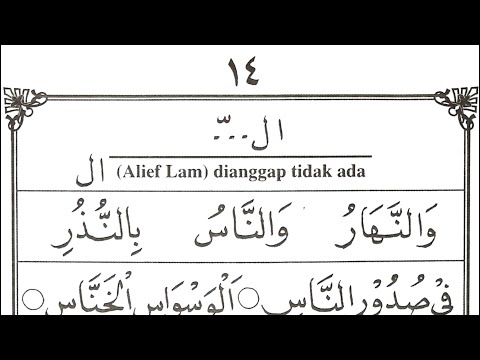 ١٤
ال...ّ
ال (Alief Lam) dianggap tidak ada
وَالنَّهَارُ وَالنَّاسُ بِالنُّذُرِ
فِيْ صُدُوْرِ النَّاسِ ○ اَلْوَسْوَاسِ الْخَنَّاسِ ○